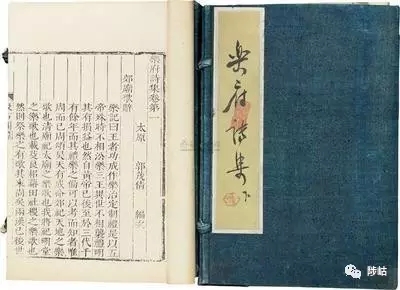 樂府詩集卷第一
太原 郭茂倩 編次
郊廟歌辭
樂記曰王者功成作樂治定制禮是以五
帝殊時不相沿樂三王異世不相襲禮明
其有損益也然自黃帝已後至於三代千
有餘年而其禮樂之備可以考而知者唯
周而已周頌昊天有成命郊祀天地之樂
歌也清廟祀太廟之樂歌也我將祀明堂
之樂歌也載芟良耜藉田社稷之樂歌也
然則祭樂之有歌其來尚矣兩漢已後世
樂府詩集 下
陟岵